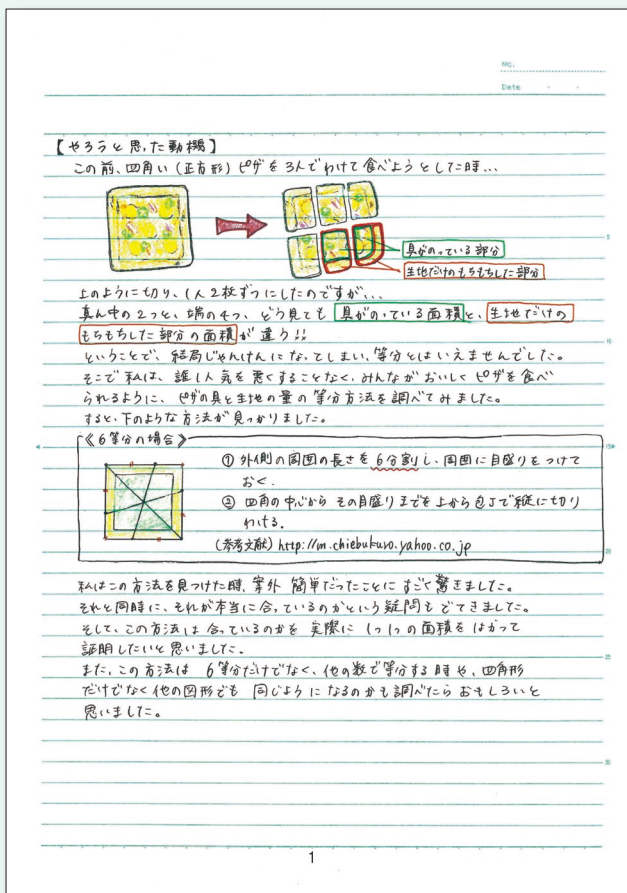 No.
Date ・ ・
【やろうと思った動機】
この前、四角い(正方形)ピザを3人でわけて食べようとした時…
具がのっている部分
生地だけのもちもちした部分
上のように切り、1人2枚ずつにしたのですが…
真ん中の2つと、端の4つ、どう見ても 具がのっている面積と、生地だけの
もちもちした部分の面積が違う!!
ということで、結局じゃんけんになってしまい、等分とはいえませんでした。
そこで私は、誰1人気を悪くすることなく、みんながおいしくピザを食べ
られるように、ピザの具と生地の量の等分方法を調べてみました。
すると、下のような方法が見つかりました。
《6等分の場合》
① 外側の周囲の長さを6分割し、周囲に目盛りをつけて
おく。
② 四角の中心からその目盛りまでを上から包丁で縦に切り
わける。
(参考文献) http://m.chiebukuro.yahoo.co.jp
私はこの方法を見つけた時、案外 簡単だったことにすごく驚きました。
それと同時に、それが本当に合っているのかという疑問もでてきました。
そして、この方法は合っているのかを 実際に1つ1つの面積をはかって
証明したいと思いました。
また、この方法は 6等分だけでなく、他の数で等分する時や、四角形
だけでなく他の図形でも 同じようになるのかも調べたらおもしろいと
思いました。
5
10
15
20
25
30
1